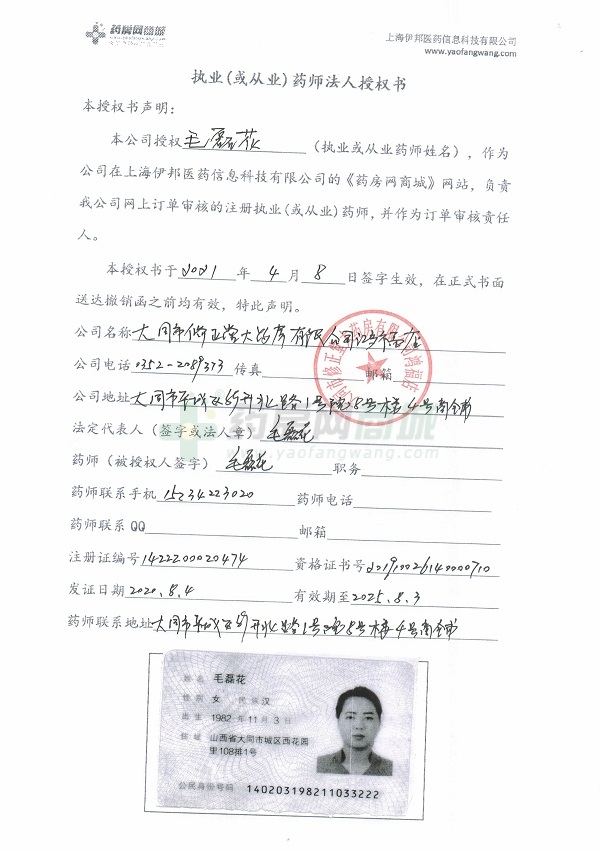 药房网商城
上海伊邦医药信息科技有限公司
www.yaofangwang.com
执业(或从业)药师法人授权书
本授权书声明：
本公司授权毛磊花（执业或从业药师姓名），作为
公司在上海伊邦医药信息科技有限公司的《药房网商城》网站，负责
我公司网上订单审核的注册执业(或从业)药师，并作为订单审核责任
人。
本授权书于2021年4月8日签字生效，在正式书面
送达撤销函之前均有效，特此声明。
公司名称大同市修正堂大药房有限公司鸿福店
公司电话0352-2089373传真 邮箱
公司地址大同市平城区 开北路1号院8号楼4号商铺
法定代表人（签字或法人章）毛磊花
药师（被授权人签字）毛磊花 职务
药师联系手机15234223020 药师电话
药师联系QQ 邮箱
注册证编号142220020474 资格证书号20191002614000710
发证日期2020.8.4 有效期至2025.8.3
药师联系地址大同市平城区 开北路1号院8号楼4号商铺
药房网商城
www.yaofangwang.com
姓名 毛磊花
性别 女 民族 汉
出生 1982年11月3日
住址 山西省大同市城区西花园
里108排1号
公民身份号码 140203198211033222